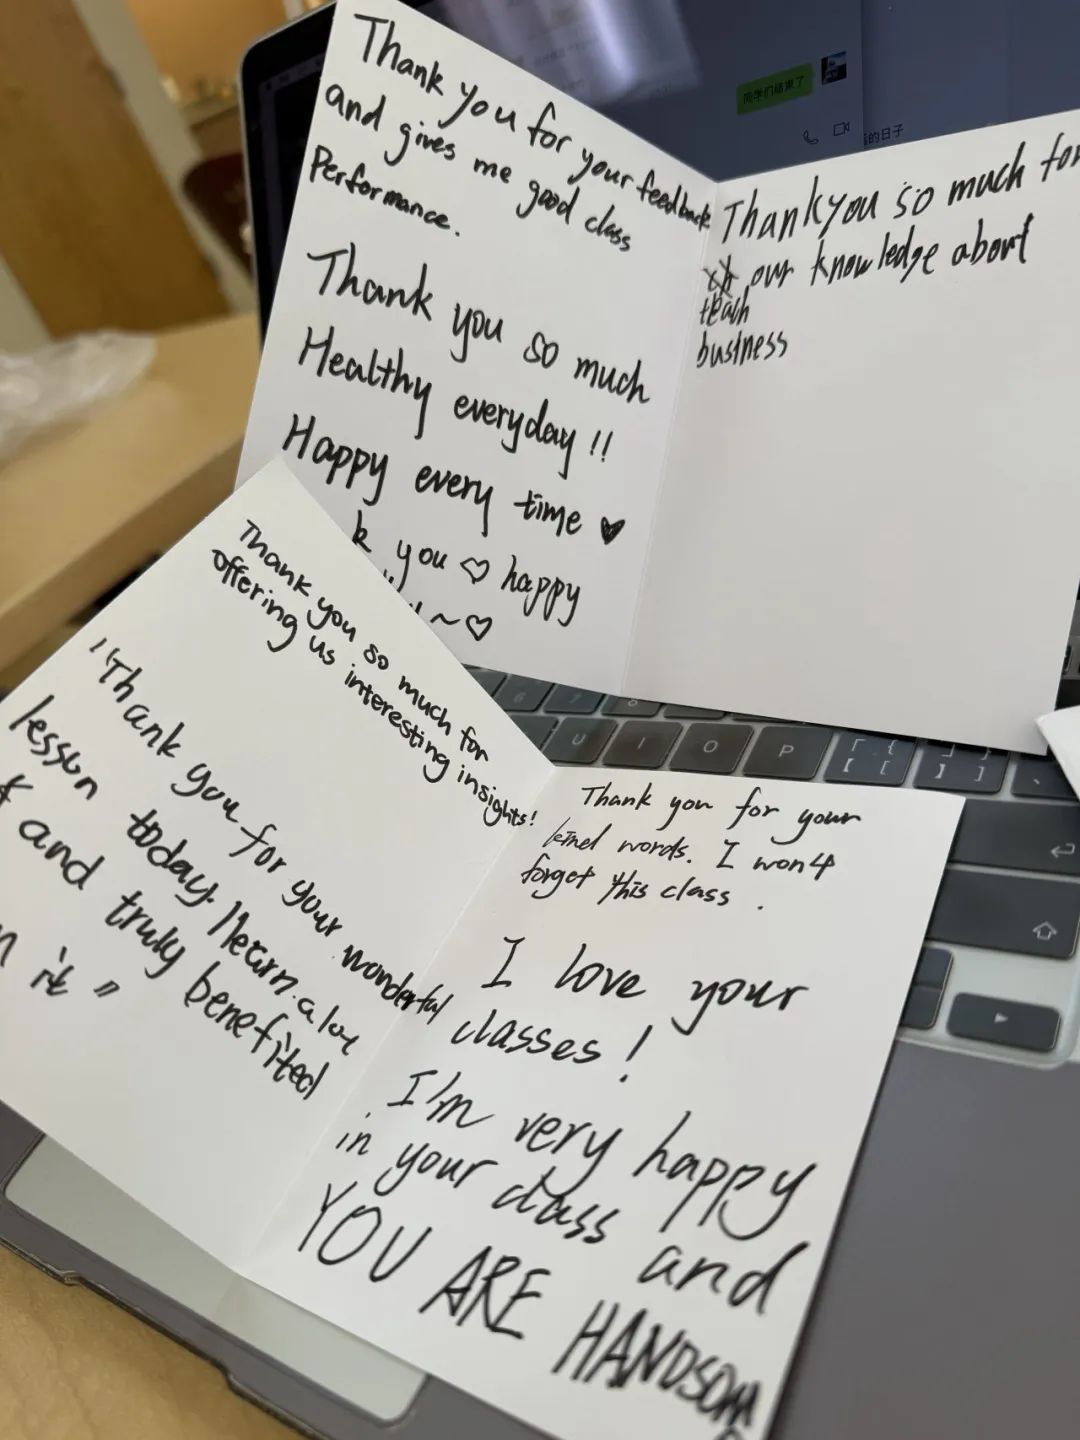 Thank you for your feedback
and gives me good class
Performance.
Thank you so much
Healthy everyday !!
Happy every time ♥
k you ♡ happy
~♡
Thankyou so much for
our knowledge abort
teach
business
Thank you so much for
offering us interesting insights!
"Thank you for your wonderful
lesson today. I learn a lot
and truly benefited
it"
Thank you for your
kind words. I won't
forget this class.
I love your
classes!
I'm very happy
in your class and
YOU ARE HANDSOM
同学们结束了
的日子
U I O P